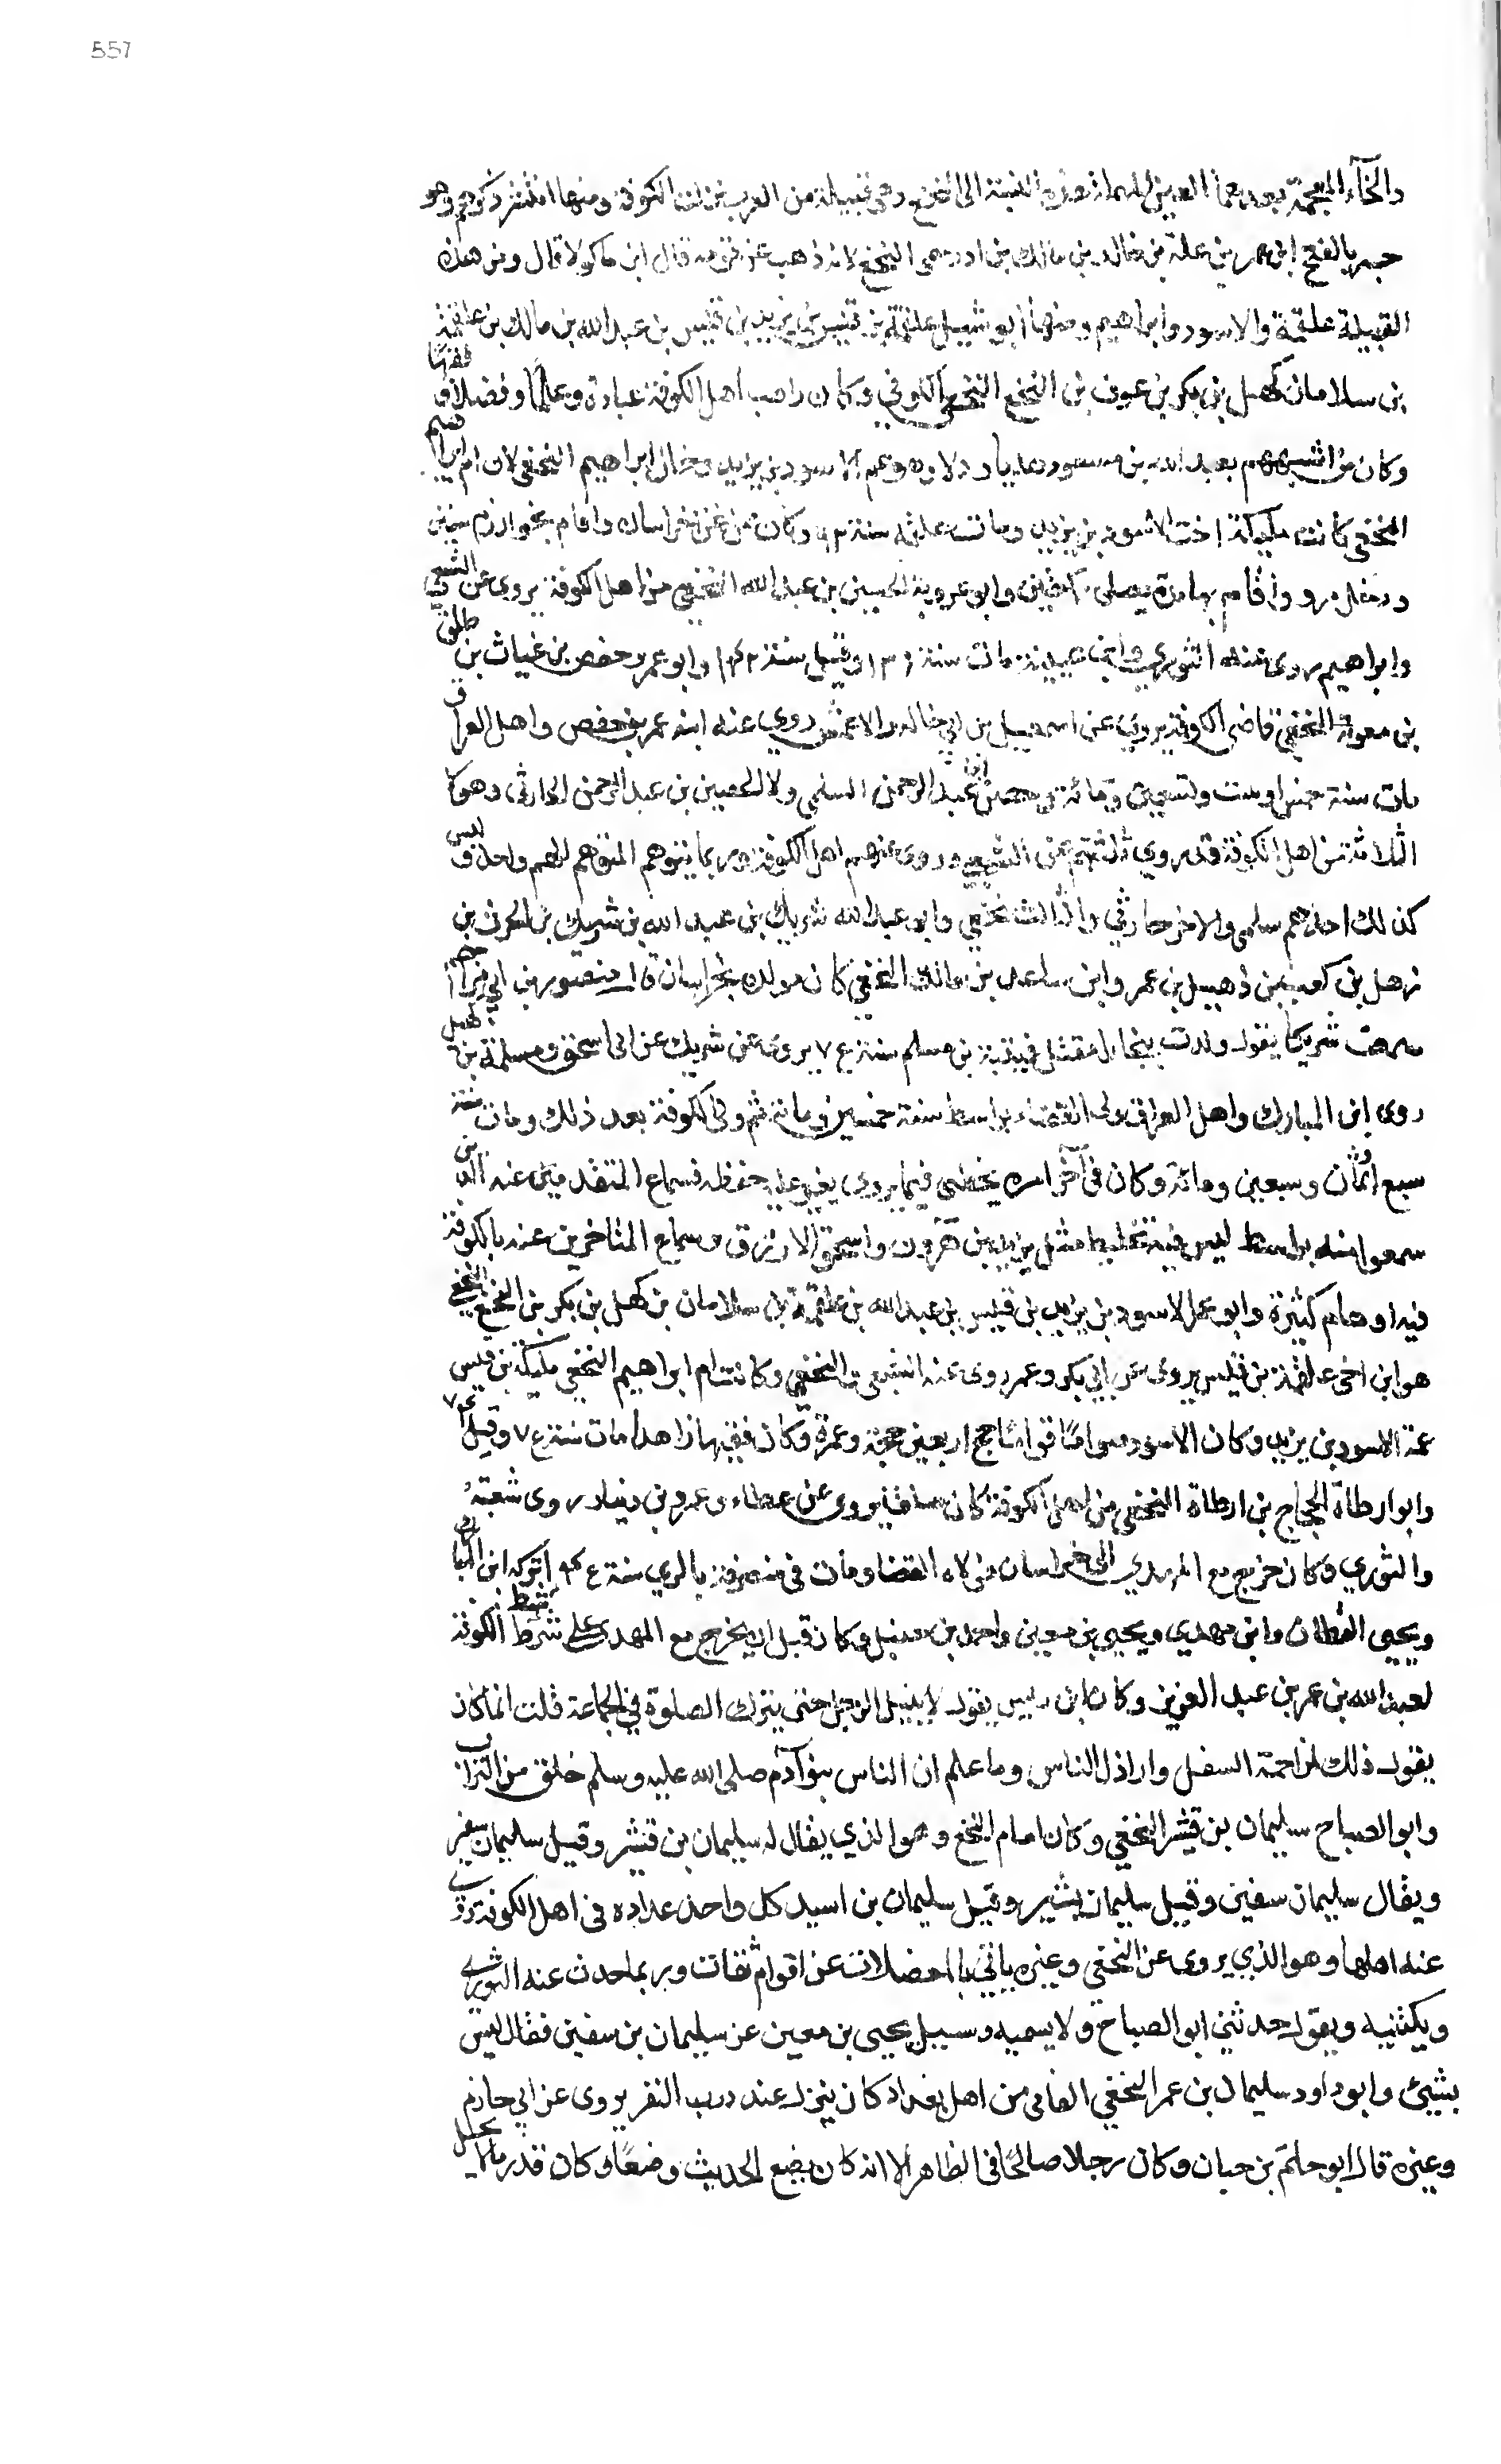 557
والخاء المعجمة بعدهما العين المهملة هذه النسبة الى النخع وهي قبيلة من العرب نزلت الكوفة ومنها انتشر ذكرهم وهو
جسر بالفتح ابن عمرو بن علة بن خالد بن مالك بن ادد سمى النخع لانه ذهب عن قومه قال ابن ماكولا قال ومن هذه
القبيلة علقمة والاسود وابراهيم ومنها ابو شبيل علقمة بن قيس بن يزيد بن قيس بن عبد الله بن مالك بن علقمة
بن سلامان كهل بن بكر بن عوف بن النخع النخعي الكوفي وكان راهب اهل الكوفة عبادة وعلما وفضلا وفقها
وكان من اشبههم بعبد الله بن مسعود هديا ودلا وهو عم الاسود بن يزيد وخال ابراهيم النخعي لان ام ابراهيم
النخعي كانت مليكة اخت الاسود بن يزيد ومات علقمة سنة وكان ممن غزا خراسان واقام بخوارزم سنتين
ودخل مرو واقام بها مدة يصلي ركعتين وابو عروبة الحسين بن عبد الله النخعي من اهل الكوفة يروي عن الشعبي
وابراهيم روى عنه الثوري وابن عيينة مات سنة وقيل سنة وابو عمرو حفص بن غياث بن طلق
بن معوية النخعي قاضي الكوفة يروي عن اسمعيل بن ابي خالد والاعمش روى عنه ابنه عمر بن حفص واهل العراق
مات سنة خمس او ست وتسعين ومائة وحصين بن عبد الرحمن السلمي ولا الحصين بن عبد الرحمن الحارثي وهوكا
الثلاثة من اهل الكوفة قد روى ثلثتهم عن الشعبي وروى عنهم اهل الكوفة وربما يتوهم المتوهم انهم واحد وليس
كذلك احدهم سلمي والاخر حارثي والثالث نخعي وابو عبد الله شريك بن عبد الله بن شريك بن الحرث بن
ذهل بن كعب بن ذهيل بن عمرو ابن ساعد بن مالك النخعي كان مولده بخراسان قال منصور بن ابي مزاحم
سمعت شريكا يقول ولدت ببخارا مقتل قتيبة بن مسلم سنة يروي عن شريك عن ابي اسحق وسلمة بن كهيل
روى ابن المبارك واهل العراق ولي القضاء بواسط سنة خمسين ومائة ثم ولي الكوفة بعد ذلك ومات سنة
سبع او ثمان وسبعين ومائة وكان في آخر امره يخطي فيما يروي يغير عليه حفظه فسماع المتقدمين عنه الذين
سمعوا منه بواسط ليس فيه تخليط مثل يزيد بن هرون واسحق الازرق وسماع المتاخرين عنه بالكوفة
فيه اوهام كثيرة وابو عمر الاسود بن يزيد بن قيس بن عبد الله بن علقمة بن سلامان بن كهل بن بكر بن النخع النخعي
هو ابن اخي علقمة بن قيس يروي عن ابي بكر وعمر روى عنه الشعبي والنخعي وكانت ام ابراهيم النخعي مليكة بن قيس
عمة الاسود بن يزيد وكان الاسود صواما قواما حج اربعين حجة وعمرة وكان فقيها زاهدا مات سنة ٧٤ وقيل
وابو ارطاة الحجاج بن ارطاة النخعي من اهل الكوفة كان صلفا يروي عن عطاء وعمرو بن دينار روى شعبة
والثوري وكان خرج مع المهدي الى خراسان فولاه القضا ومات في منصرفه بالري سنة تركه ابن المبارك
ويحيى القطان وابن مهدي ويحيى بن معين واحمد بن حنبل وكان قبل ان يخرج مع المهدي على شرط الكوفة
لعبد الله بن عمر بن عبد العزيز وكان ابن ادريس يقول لا ينبل الرجل حتى يترك الصلوة في الجماعة قلت انما كان
يقول ذلك لمزاحمة السفل واراذل الناس وما علم ان الناس بنو آدم صلى الله عليه وسلم خلق من التراب
وابو الصباح سليمان بن قشر النخعي وكان امام النخع وهو الذي يقال له سليمان بن قيشر وقيل سليمان سفر
ويقال سليمان سفين وقيل سليمان بشير وقيل سليمان بن اسيد كل واحد عداده في اهل الكوفة روى
عنه اهلها وهو الذي يروي عن النخعي وغيره ياتي بالمعضلات عن اقوام ثقات وربما حدث عنه الثوري
ويكنيه ويقول حدثني ابو الصباح ولا يسميه وسيل يحيى بن معين عن سليمان بن سفين فقال ليس
بشيئ وابو داود سليمان بن عمر النخعي العامي من اهل بغداد كان ينزل عند درب النقر يروي عن ابي حازم
وغيره قال ابو حاتم بن حبان وكان رجلا صالحا في الظاهر الا انه كان يضع الحديث وضعا وكان قدريا لا يحل